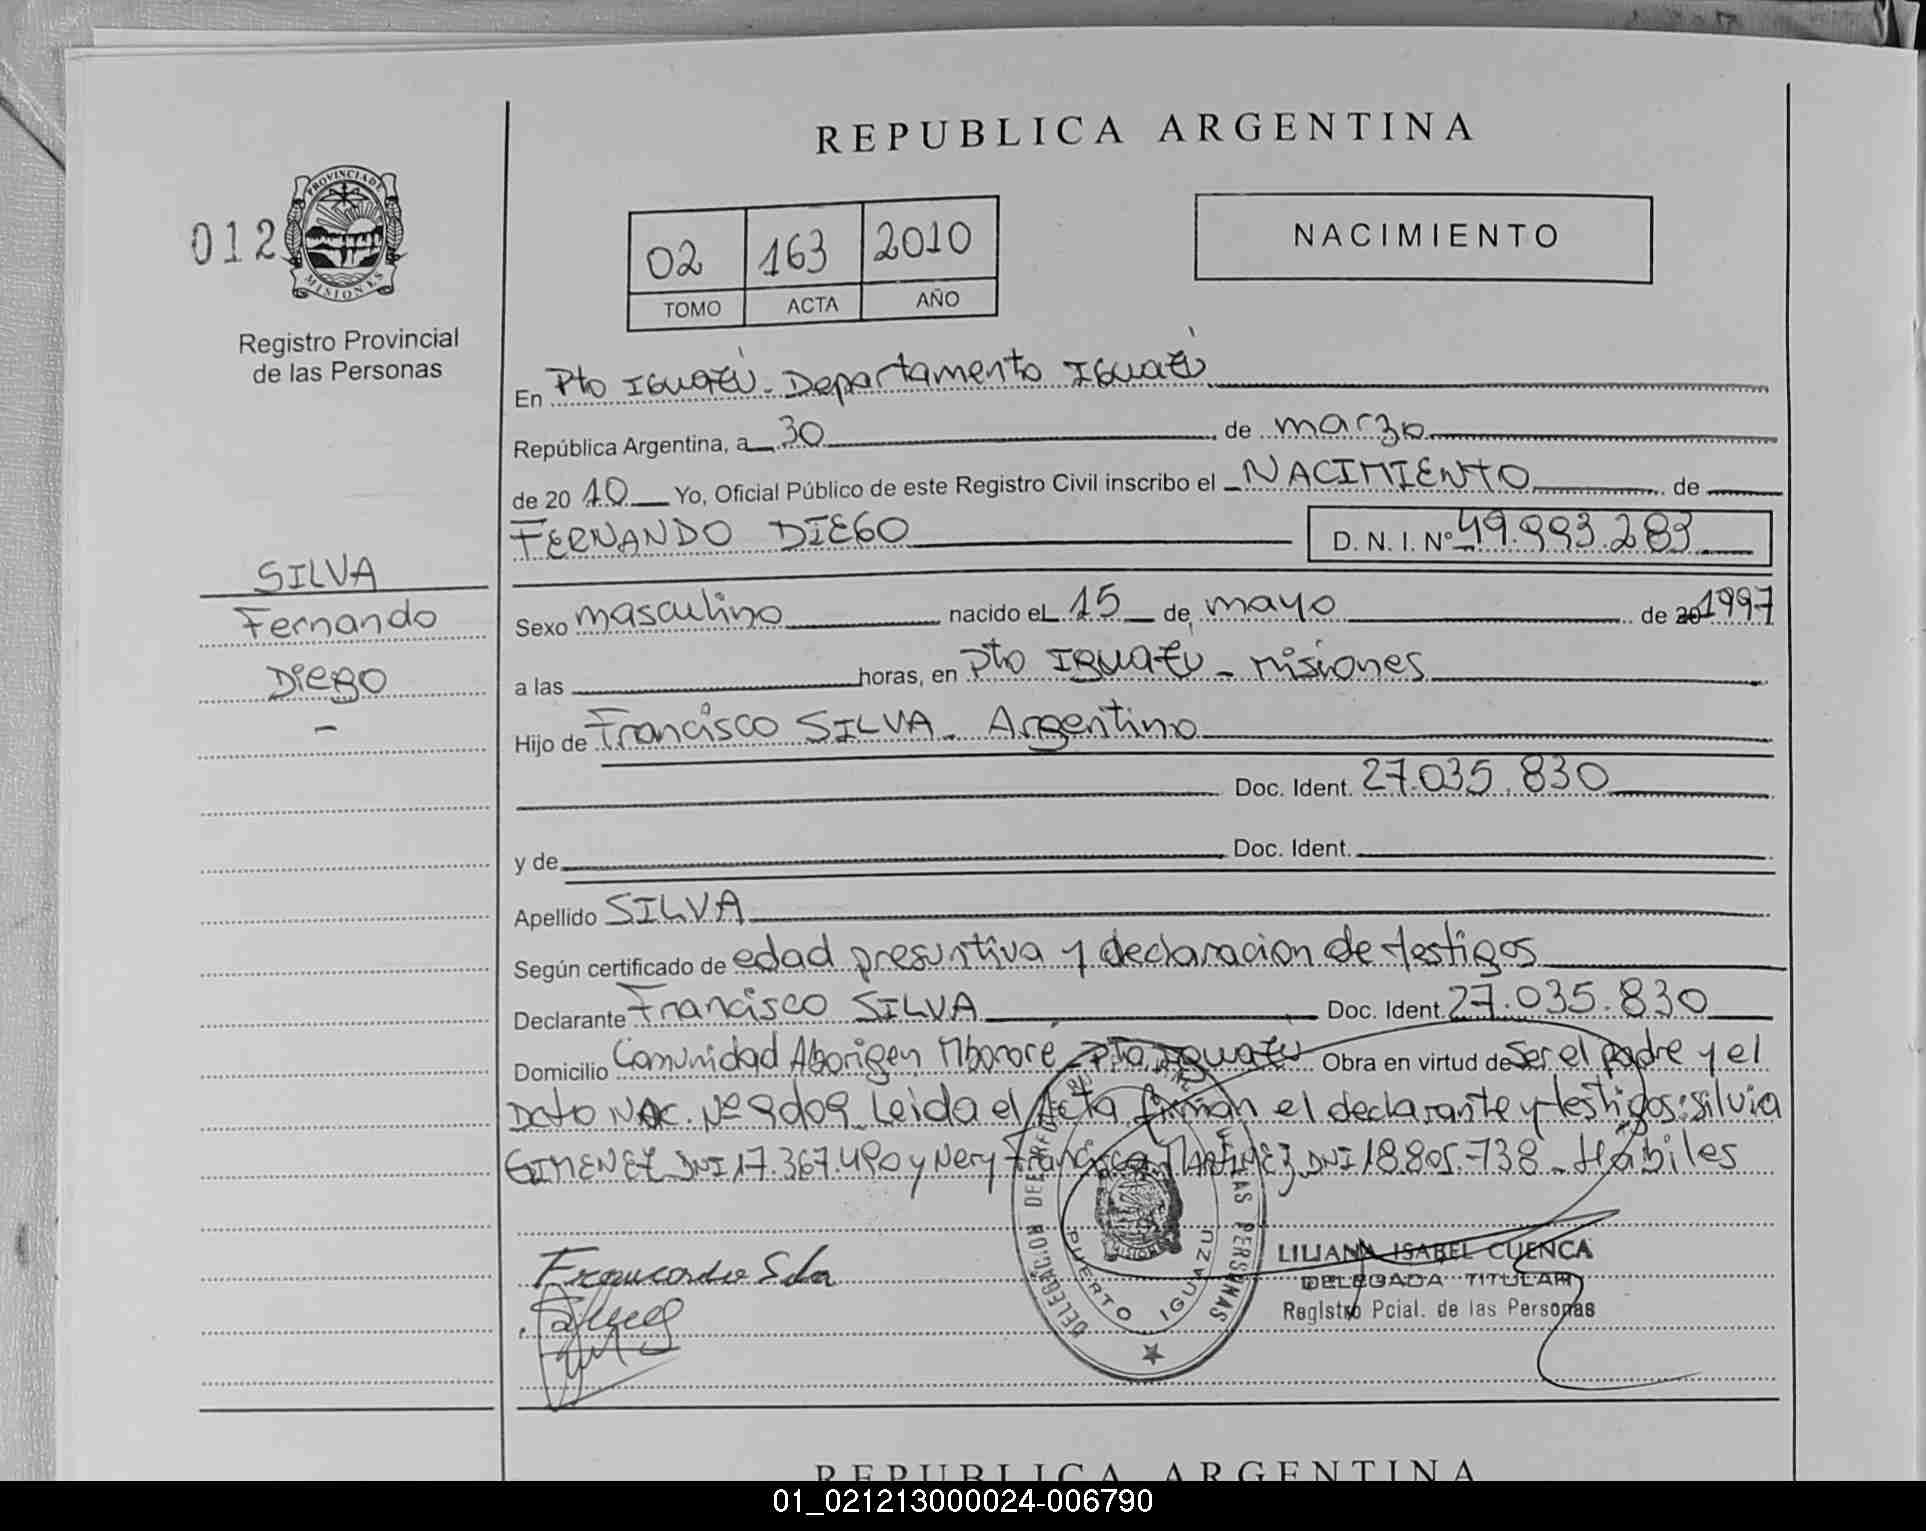 REPUBLICA ARGENTINA
012
PROVINCIA DE
MISIONES
02 163 2010
TOMO ACTA AÑO
NACIMIENTO
Registro Provincial
de las Personas
En Pto Iguazú - Departamento Iguazú
República Argentina, a 30 de marzo
de 20 10 Yo, Oficial Público de este Registro Civil inscribo el NACIMIENTO de
FERNANDO DIEGO D. N. I. Nº 49.993.283
SILVA
Fernando
Diego
-
Sexo masculino nacido el 15 de mayo de 20 1997
a las horas, en Pto Iguazú - Misiones
Hijo de Francisco SILVA - Argentino
Doc. Ident. 27.035.830
y de Doc. Ident.
Apellido SILVA
Según certificado de edad presuntiva y declaracion de testigos
Declarante Francisco SILVA Doc. Ident. 27.035.830
Domicilio Comunidad Aborigen Mbororé - Pto Iguazú Obra en virtud de Ser el padre y el
Dcto Nac. Nº 90
Leida el Acta firman el declarante y testigos: Silvia
GIMENEZ DNI 17.367.490 y Nery Francisca MARTINEZ DNI 18.805.738 - Hábiles
DELEGACION DEL REGISTRO DE LAS PERSONAS
MISIONES
PUERTO IGUAZU
LILIANA ISABEL CUENCA
DELEGADA TITULAR
Registro Pcial. de las Personas
REPUBLICA ARGENTINA
01_021213000024-006790